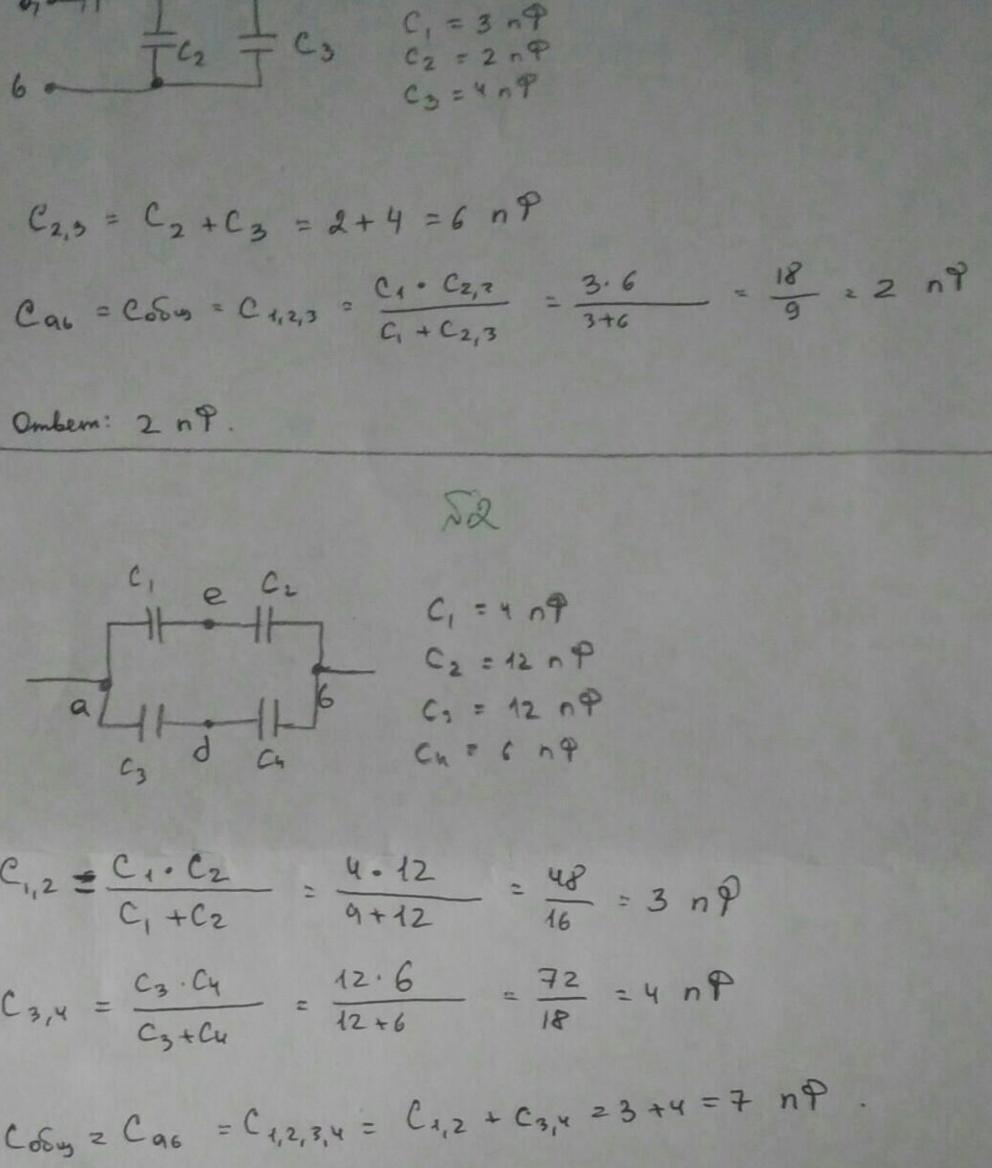 C₂ C₃ C₁ = 3 пФ
C₂ = 2 пФ
б C₃ = 4 пФ
C₂,₃ = C₂ + C₃ = 2 + 4 = 6 пФ
Cаб = Cобщ = C₁,₂,₃ = (C₁ · C₂,₃)/(C₁ + C₂,₃) = (3 · 6)/(3+6) = 18/9 = 2 пФ
Ответ: 2 пФ.
№2
C₁ e C₂ C₁ = 4 пФ
C₂ = 12 пФ
a б C₃ = 12 пФ
C₃ d C₄ C₄ = 6 пФ
C₁,₂ = (C₁ · C₂)/(C₁ + C₂) = (4 · 12)/(4+12) = 48/16 = 3 пФ
C₃,₄ = (C₃ · C₄)/(C₃ + C₄) = (12 · 6)/(12+6) = 72/18 = 4 пФ
Cобщ = Cаб = C₁,₂,₃,₄ = C₁,₂ + C₃,₄ = 3 + 4 = 7 пФ.